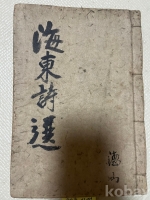 海東詩選
德山
kobay